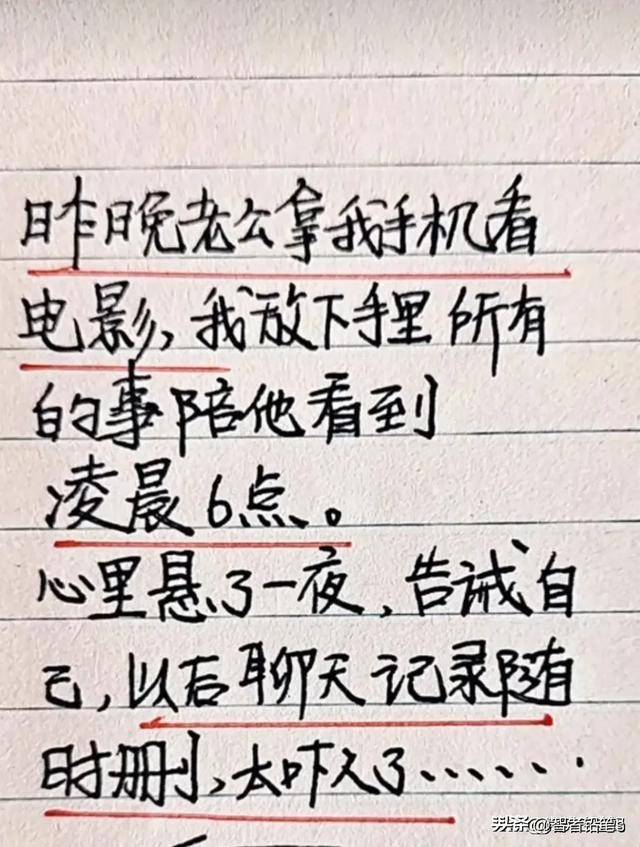 昨晚老公拿我手机看
电影,我放下手里所有
的事陪他看到
凌晨6点。
心里悬了一夜,告诫自
己,以后聊天记录随
时删,太吓人了......
头条@智者铅笔